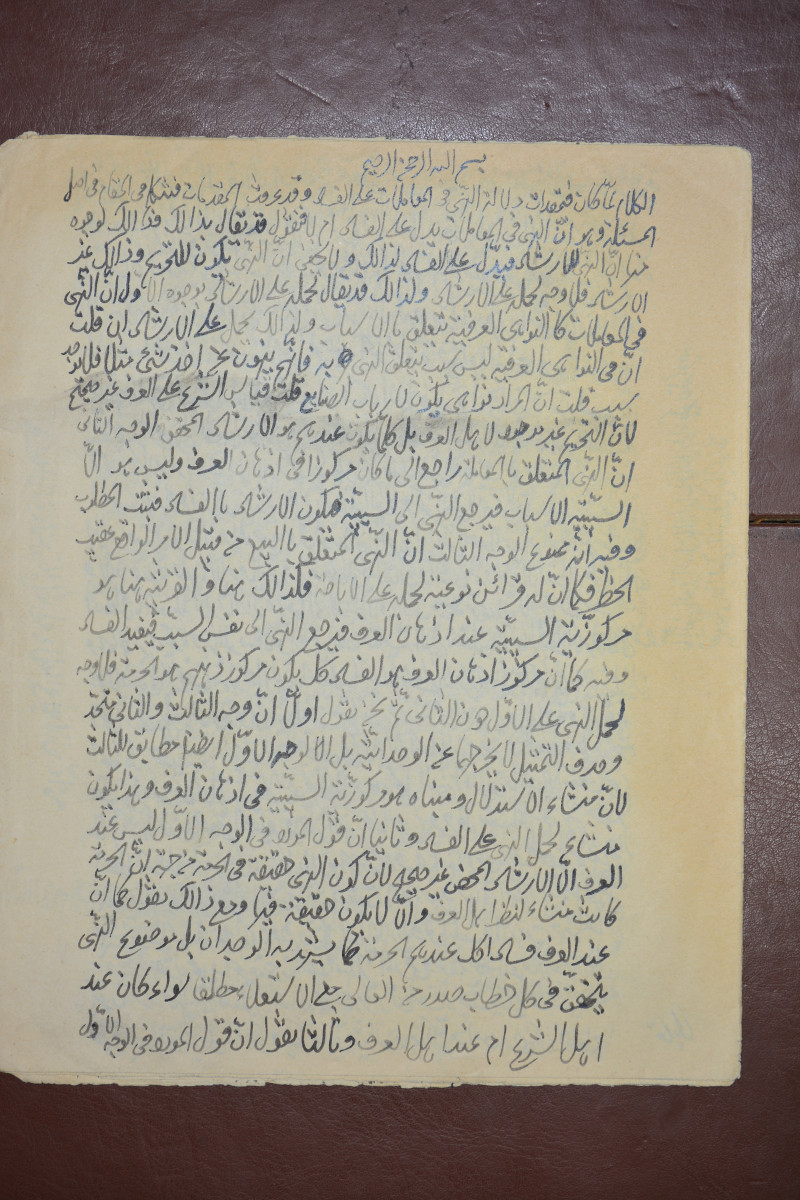 بسم الله الرحمن الرحيم
الكلام لما كان في مقدمات دلالة النهى فى المعاملات على الفساد وقد عرفت المقدمات فنتكلم فى المقام فى اصل
المسئلة وهو انّ النهى فى المعاملات يدل على الفساد ام لا فنقول قد يقال بذالك فذالك لوجوه
منها انّ النهى للارشاد فيدّل على الفساد لذالك ولا يخفى انّ النهى تكون للتحريم وذالك غير
الارشاد فلا وجه لحمله على الارشاد ولذالك قد يقال لحمله على الارشاد بوجوه الاوّل انّ النهى
فى المعاملات كالنواهى العرفية تتعلق بالاسباب ولذالك يحمل على الارشاد ان قلت
انّ فى النواهى العرفية ليس سبب يتعلق النهى به فانهم ينهون عن اخذ شئ مثلا فلا يوجد
سبب قلت انّ المراد نواهى يكون لارباب الصنايع قلت قياس الشرع على العرف غير صحيح
لانّ التحريم غير موجود لاهل العرف بل كلما يكون عندهم هو الارشاد المحض الوجه الثانى
انّ النهى المتعلق بالمعاملة راجع الى ما كان مركوزا فى اذهان العرف وليس هو الّا
السببيّة الاسباب فيرجع النهى الى السببيّة فيكون الارشاد بالفساد فيثبت المطلوب
وفيه انّه ممنوع الوجه الثالث انّ النهى المتعلق بالبيع من قبيل الامر الواقع عقيب
الحظر فكما انّ له قرائن نوعية لحمله على الاباحة فكذالك هنا والقرينة هنا هو
مركوزّية السببيّة عند اذهان العرف فيرجع النهى الى نفس السبب فيفيد الفساد
وفيه كما انّ مركوز اذهان العرف هو الفساد كك يكون مركوز ذهنهم هو الحرمة فلا وجه
لحمل النهى على الاوّل دون الثانى ثمّ نحن نقول اولاً انّ وجه الثالث والثانى متحد
وصرف التمثيل لا يخرجها عن الوحدانيّة بل الوجه الاوّل ايضا مطابق للثالث
لانّ منشاء الاستدلال ومبناه هو مركوزّية السببيّة فى اذهان العرف وهذا يكون
منشاء لحمل النهى على الفساد وثانيا انّ قول المورد فى الوجه الاوّل ليس عند
العرف الّا الارشاد المحض غير صحيح لانّ كون النهى حقيقة فى الحرمة من جهة انّ الحرمة
كانت منشاء لنظر اهل العرف والّا لا يكون حقيقة فيها ومع ذالك نقول كما انّ
عند العرف فساد اكك عندهم الحرمة كما يشهد به الوجدان بل موضوع النهى
يتحقق فى كل خطاب صدر من العالى على الاستعلاء مطلقا سواء كان عند
اهل الشرع ام عند اهل العرف وثالثا نقول انّ قول المورد فى الوجه الاوّل